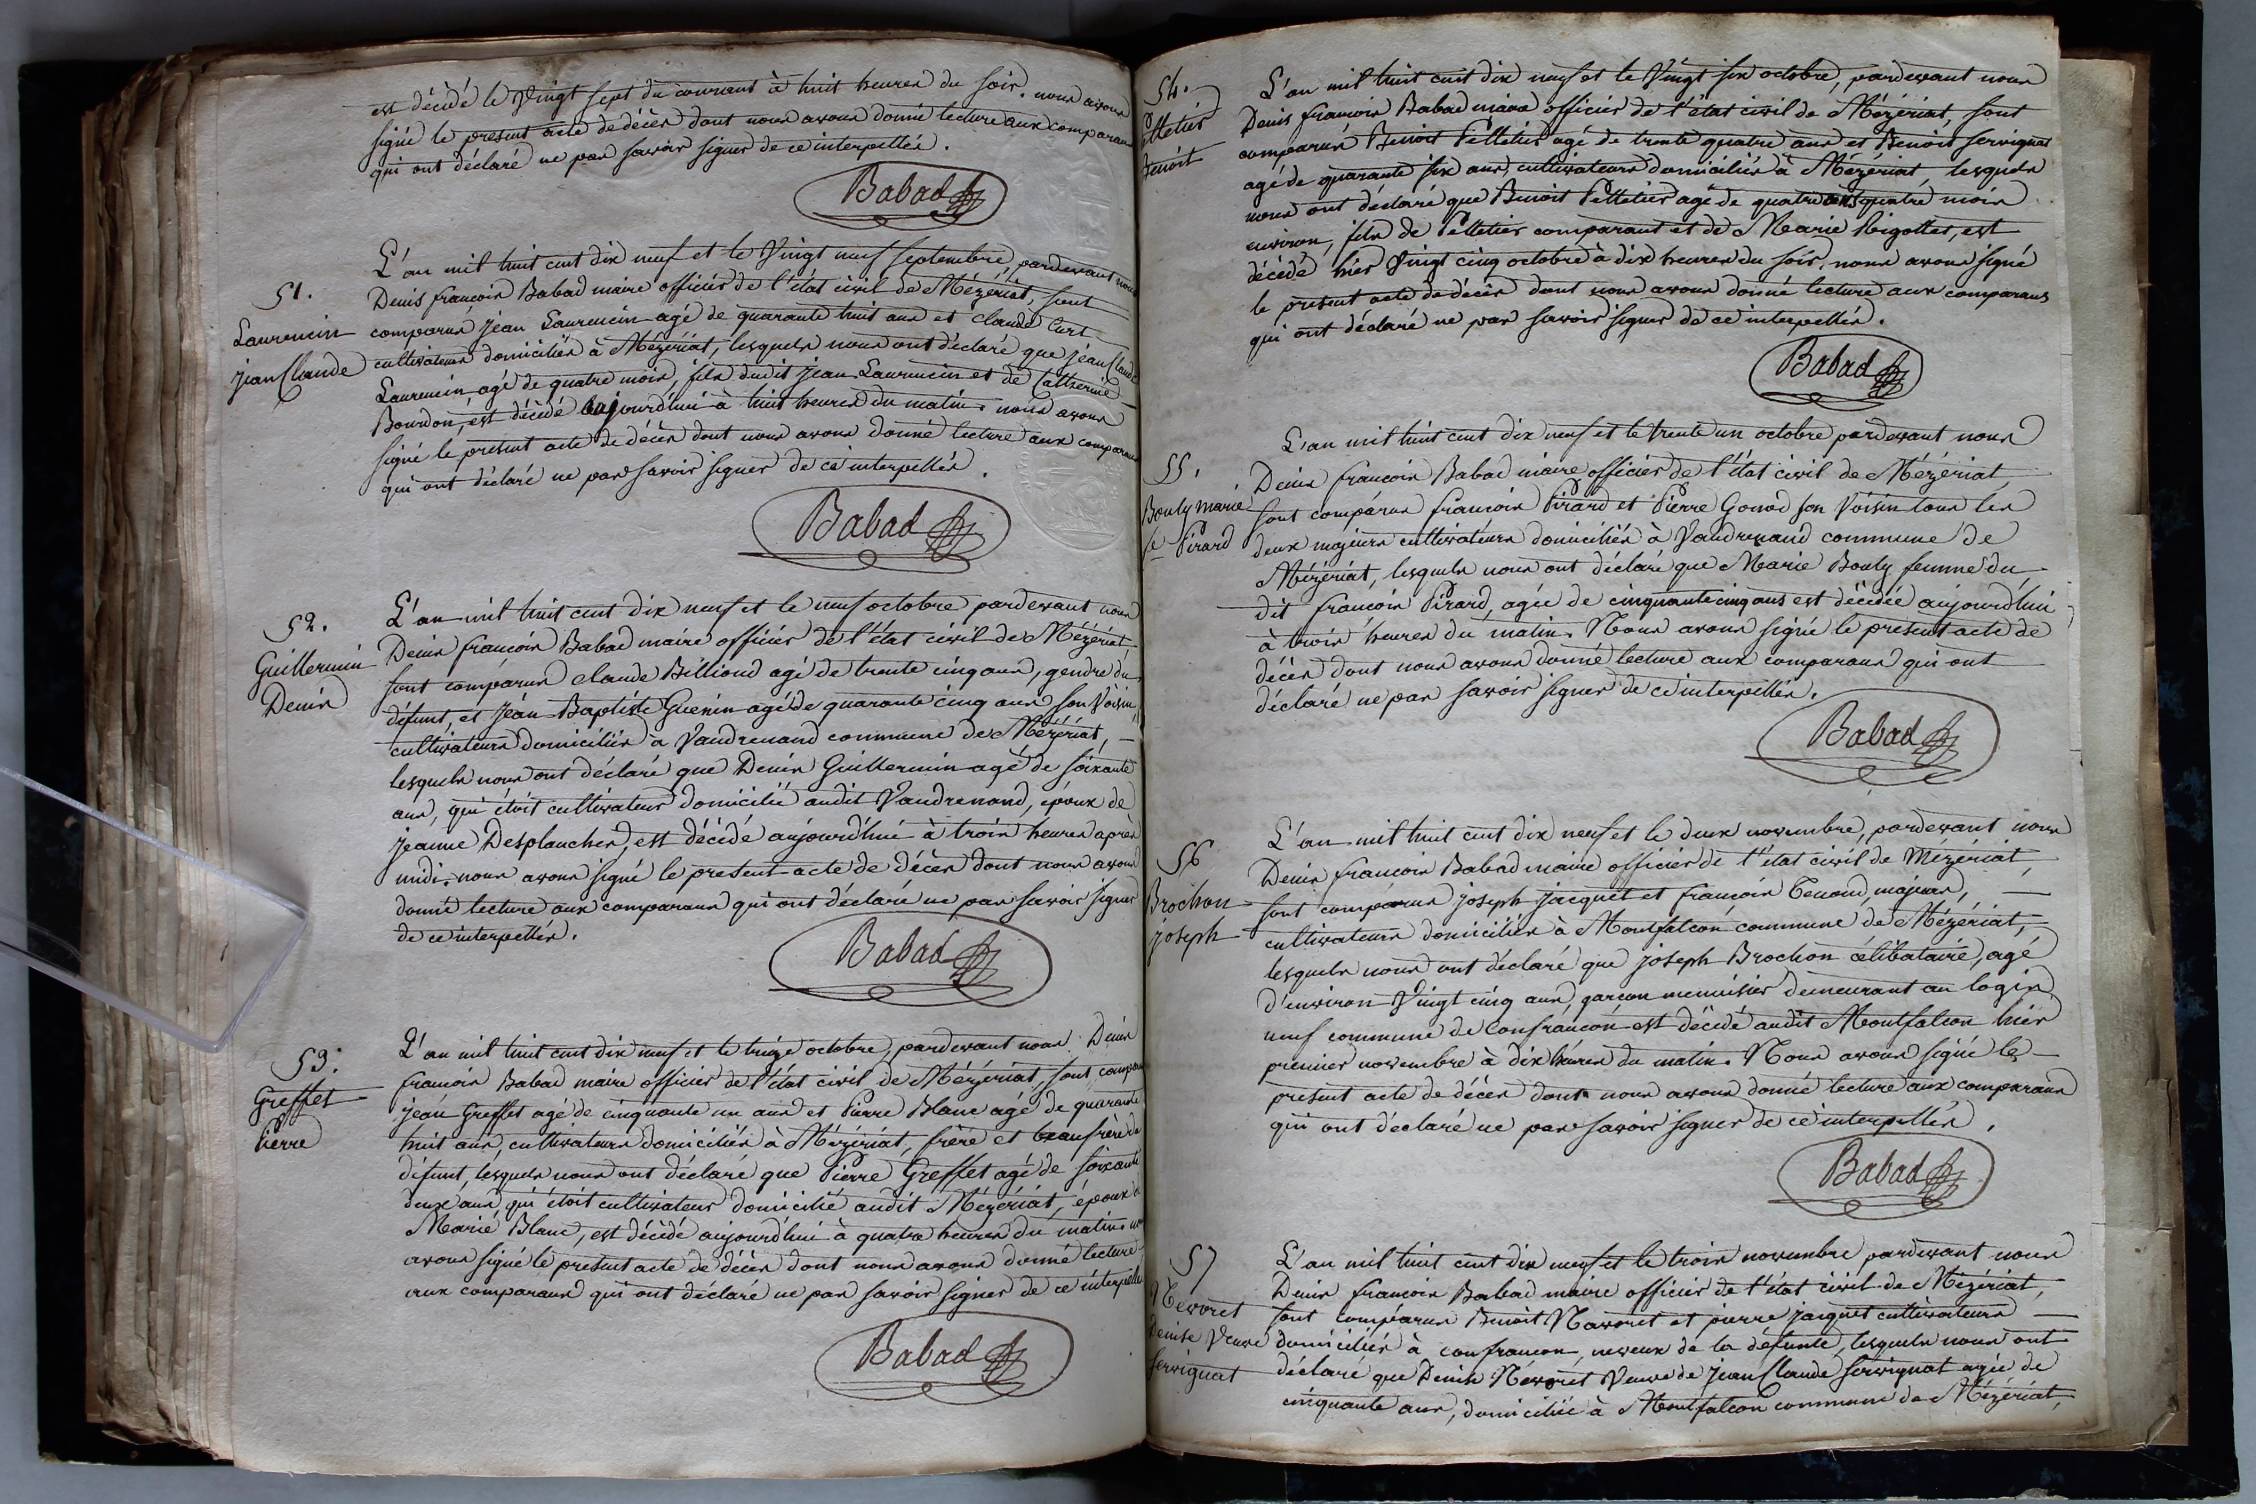 est décédé le Vingt sept du courant à huit heures du soir. nous avons
signé le present acte de décès dont nous avons donné lecture aux comparans
qui ont déclaré ne pas savoir signer de ce interpellés.
Babad
51.
Laurencin
jean Claude
L'an mil huit cent dix neuf et le Vingt neuf septembre, pardevant nous
Denis françois Babad maire officier de l'état civil de Mézériat, sont
comparus jean Laurencin agé de quarante huit ans et claude Curt
cultivateurs domiciliés à Mézériat, lesquels nous ont déclaré que jean Claude
Laurencin, agé de quatre mois, fils dudit jean Laurencin et de Catherine
Bourdon, est décédé aujourd'hui à huit heures du matin. nous avons
signé le present acte de décès dont nous avons donné lecture aux comparans
qui ont déclaré ne pas savoir signer de ce interpellés.
Babad
52.
Guillermin
Denis
L'an mil huit cent dix neuf et le neuf octobre pardevant nous
Denis françois Babad maire officier de l'état civil de Mézériat,
sont comparus claude Billioud agé de trente cinq ans, gendre du
défunt, et jean Baptiste Guenin agé de quarante cinq ans son Voisin,
cultivateurs domiciliés à Vandrenand commune de Mézériat,
lesquels nous ont déclaré que Denis Guillermin agé de soixante
ans, qui étoit cultivateur domicilié audit Vandrenand, époux de
jeanne Desplanches, est décédé aujourd'hui à trois heures après
midi. nous avons signé le present acte de décès dont nous avons
donné lecture aux comparans qui ont déclaré ne pas savoir signer
de ce interpellés.
Babad
53.
Greffet
Pierre
L'an mil huit cent dix neuf et le treize octobre, pardevant nous Denis
françois Babad maire officier de l'état civil de Mézériat, sont comparus
jean Greffet agé de cinquante un ans et Pierre Blanc agé de quarante
huit ans, cultivateurs domiciliés à Mézériat, frère et beaufrère du
défunt, lesquels nous ont déclaré que Pierre Greffet agé de soixante
deux ans qui étoit cultivateur domicilié audit Mézériat, époux de
Marie Blanc, est décédé aujourd'hui à quatre heures du matin. nous
avons signé le present acte de décès dont nous avons donné lecture
aux comparans qui ont déclaré ne pas savoir signer de ce interpellés
Babad
54.
Pelletier
Benoit
L'an mil huit cent dix neuf et le Vingt six octobre, pardevant nous
Denis françois Babad maire officier de l'état civil de Mézériat, sont
comparus Benoit Pelletier agé de trente quatre ans et Benoit servignat
agé de quarante six ans, cultivateurs domiciliés à Mézériat, lesquels
nous ont déclaré que Benoit Pelletier agé de quatre ans quatre mois
environ, fils de Pelletier comparant et de Marie Rigottet, est
décédé hier Vingt cinq octobre à dix heures du soir. nous avons signé
le present acte de décès dont nous avons donné lecture aux comparans
qui ont déclaré ne pas savoir signer de ce interpellés.
Babad
55.
Bouly marie
fe Pirard
L'an mil huit cent dix neuf et le trente un octobre pardevant nous
Denis françois Babad maire officier de l'état civil de Mézériat,
sont comparus françois Pirard et Pierre Gonod son Voisin tous les
deux majeurs cultivateurs domiciliés à Vandrenand commune de
Mézériat, lesquels nous ont déclaré que Marie Bouly femme du
dit françois Pirard, agée de cinquante cinq ans est décédée aujourd'hui
à trois heures du matin. Nous avons signé le present acte de
décès dont nous avons donné lecture aux comparans qui ont
déclaré ne pas savoir signer de ce interpellés.
Babad
56
Brochon
joseph
L'an mil huit cent dix neuf et le deux novembre, pardevant nous
Denis françois Babad maire officier de l'état civil de Mézériat,
sont comparus joseph jacquet et françois Tenoud, majeurs,
cultivateurs domiciliés à Montfalcon commune de Mézériat,
lesquels nous ont déclaré que joseph Brochon célibataire, agé
d'environ Vingt cinq ans, garçon menuisier demeurant au logis
neuf commune de Confrançon est décédé audit Montfalcon hier
premier novembre à dix heures du matin. Nous avons signé le
present acte de décès dont nous avons donné lecture aux comparans
qui ont déclaré ne pas savoir signer de ce interpellés.
Babad
57
Nevoret
Denise Veuve
servignat
L'an mil huit cent dix neuf et le trois novembre pardevant nous
Denis françois Babad maire officier de l'état civil de Mézériat,
sont comparus Benoit Navoret et pierre jacquet cultivateurs
domiciliés à confrançon, neveux de la défunte, lesquels nous ont
déclaré que Denise Nevoret Veuve de jean Claude servignat agée de
cinquante ans, domiciliée à Montfalcon commune de Mézériat,